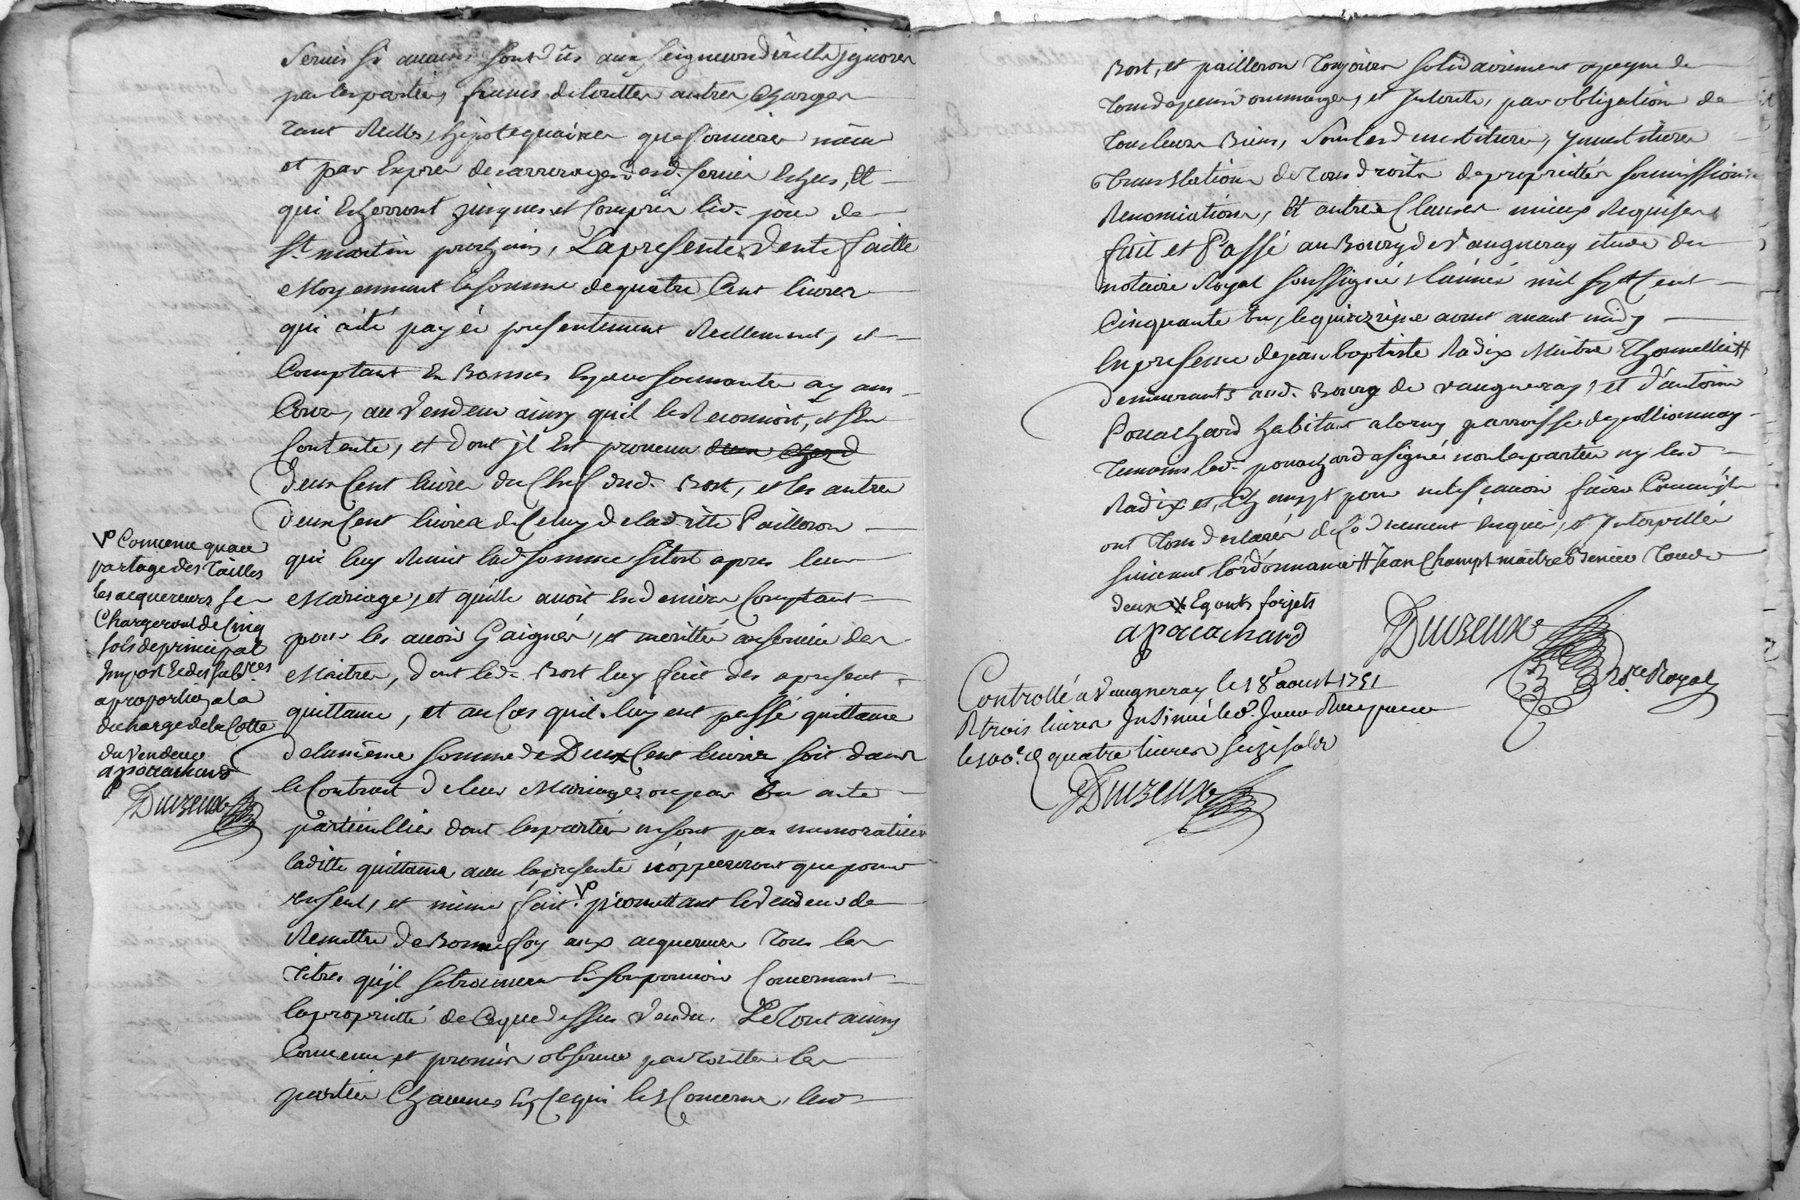 servis si aucuns sont dûs aux seigneurs directs ignorés
par les parties, francs de touttes autres charges
tant réelles, hipotequaires que foncieres même
et par exprès des arrerages desd. servis échus, et
qui écherront jusques et compris le d. jour de
st martin prochain, La presente vente faitte
Moyennant la somme de quatre Cent livres
qui a été payée presentement réellement, et
Comptant En Bonnes Especes sonnantes ayans
Cour, au Vendeur ainsy qu'il le Reconnoit, et s'en
contente, et dont jl Est provenu
deux Cent livres du Chef dud. Bost, et les autres
deux Cent livres de Celuy de laditte Pailleron
qui luy Remit lad somme sitost apres leur
Mariage, et qu'elle avoit en deniers Comptant
pour les avoir Gaignés, et merittés au service des
Maitres, dont led. Bost luy fait des apresent
quittance, et au Cas qu'il luy eut passé quittance
de la même somme de Deux Cent livres soit dans
le Contrat de leur Mariage ou par Un acte
particullier dont les parties ne sont pas memoratives
laditte quittance avec la presente n'oppereront que pour
un seul, et même fait. Vo promettant le Vendeur de
Remettre de Bonne foy aux acquereurs Tous les
Titres qu'jl se trouvera En son pouvoir Concernant
la proprietté de Ce que dessus Vendu. Le Tout ainsy
Convenu et promis observer par touttes les
parties Chacunes En Ce qui les Concerne, lesd
Vo Convenu qu'au
partage des Tailles
les acquereurs se
Chargeront de Cinq
sols de principal
Impost Et des sub.res
a proportion a la
decharge de la Cotte
du Vendeur
a pouachard
Duizeux
Bost, et pailleron Toujours solidairement a peyne de
Tous depens dommages, et Interets, par obligation de
Tous leurs Biens, devestitures, jnvestitures
Translations de Tous droits de proprietté soumissions
Renonciations, Et autres Clauses mieux Requises
fait et Passé au Bourg de Vaugneray etude du
notaire Royal soussigné l'année mil sept Cent
Cinquante Un, le quinzième aoust avant midy
En presence de jean baptiste Radix Maitre Thonnellier #
demeurants aud. Bourg de vaugneray, et d'antoine
Pouachard habitant a Lorny parroisse de pollionnay
Temoins led. pouachard a signé non les parties ny led
Radix et, Champt pour ne le sçavoir faire Comm'jls
ont Tous declarés de Ce duement Enquis, et Interpellés
suivant L'ordonnance # Jean Champt maitre Tous
deux Egouts forjets
a Pouachard
Duizeux
N.re Royal
Controllé a Vaugneray le 18e aoust 1751
R trois livres Insinué led. Jour Reçu pour
le 100.e quatre livres seize sols
Duizeux